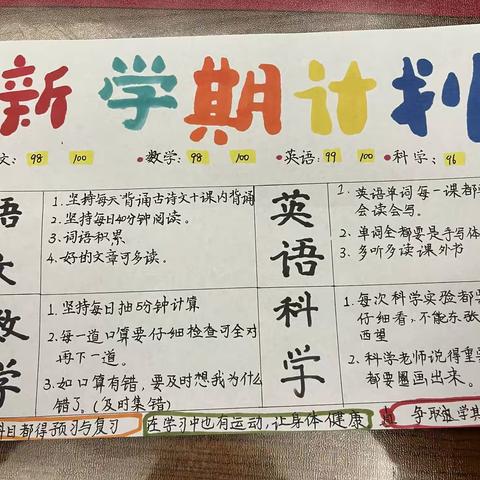 新学期计划
文: 98 100 •数学: 98 100 •英语: 99 100 •科学: 96
语文
1. 坚持每天背诵古诗文十课内背诵
2. 坚持每日40分钟阅读。
3. 词语积累
4. 好的文章可多读。
英语
1. 英语单词每一课都
会读会写。
2. 单词全都要是手写体
3. 多听多读课外书
数学
1. 坚持每日抽5分钟计算
2. 每一道口算要仔细检查可全对
再下一道。
3. 如口算有错,要及时想我为什么
错了。(及时集错)
科学
1. 每次科学实验都要
仔细看,不能东张
西望
2. 科学老师说得重要
都要圈画出来。
科目都得预习与复习
在学习中也有运动,让身体健康
争取这学期